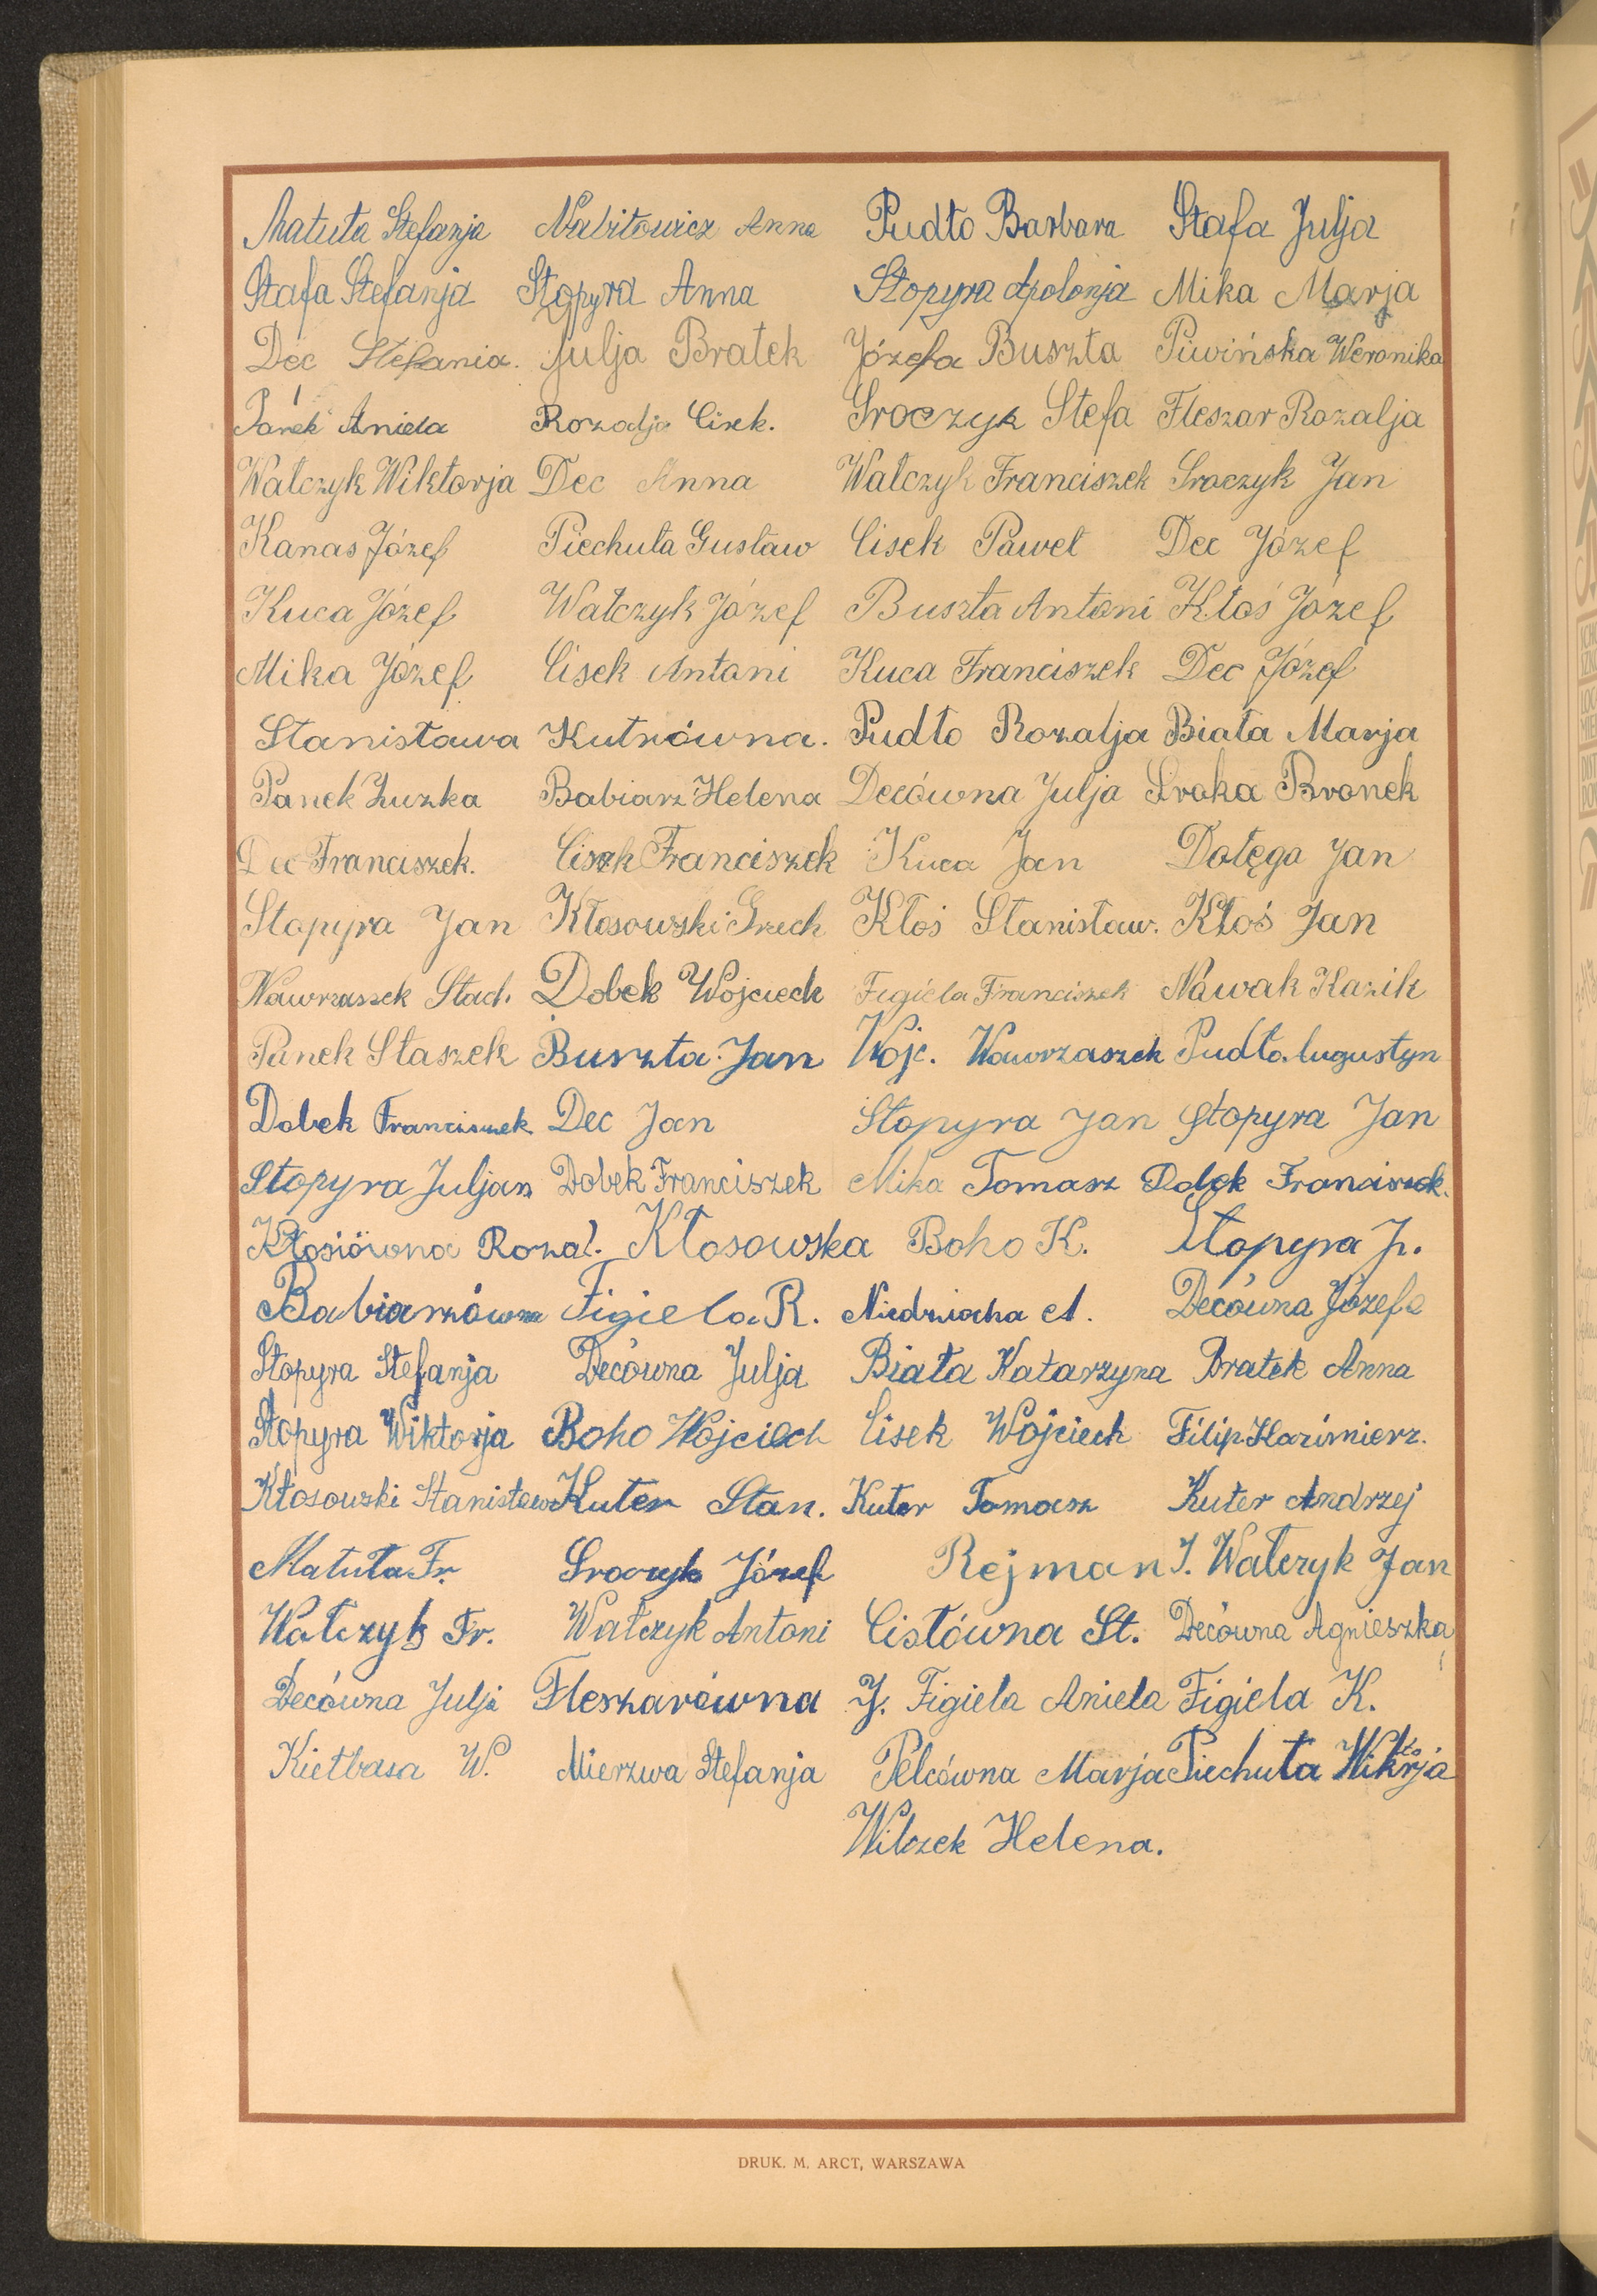 Matuła Stefanja Nabitowicz Anna Pudło Barbara Stafa Julja
Stafa Stefanja Stopyra Anna Stopyra Apolonja Mika Marja
Dec Stefania. Julja Bratek Józefa Buszta Piwińska Weronika
Panek Aniela Rozalja Cisek. Sroczyk Stefa Fleszar Rozalja
Watczyk Wiktorja Dec Anna Watczyk Franciszek Sroczyk Jan
Kanas Józef Piechuta Gustaw Cisek Paweł Dec Józef
Kuca Józef Watczyk Józef Buszta Antoni Kłoś Józef
Mika Józef Cisek Antoni Kuca Franciszek Dec Józef
Stanisława Kutrówna. Pudło Rozalja Biała Marja
Panek Zuzka Babiarz Helena Decówna Julja Sroka Bronek
Dec Franciszek. Cisek Franciszek Kuca Jan Dołęga Jan
Stopyra Jan Kłosowski Grzech Kłoś Stanisław. Kłoś Jan
Nawrzaszek Stach. Dobek Wojciech Figiela Franciszek Nowak Kazik
Panek Staszek Buszta Jan Wojc. Wawrzaszek Pudło Augustyn
Dobek Franciszek Dec Jan Stopyra Jan Stopyra Jan
Stopyra Juljan Dobek Franciszek Mika Tomasz Dobek Franciszek.
Kłosiówna Rozal. Kłosowska Boho K. Stopyra J.
Babiarzówna Figiela R. Niedziocha A. Decówna Józefa
Stopyra Stefanja Decówna Julja Biała Katarzyna Bratek Anna
Stopyra Wiktorja Boho Wojciech Cisek Wojciech Filip Kazimierz.
Kłosowski Stanisław Kuter Stan. Kuter Tomasz Kuter Andrzej
Matuła Fr. Sroczyk Józef Rejman J. Wałczyk Jan
Wałczyk Fr. Wałczyk Antoni Cistówna St. Decówna Agnieszka
Decówna Julja Fleszarówna J. Figiela Aniela Figiela K.
Kiełbasa W. Mierzwa Stefanja Pelcówna Marja Piechuta Wiktorja
Wilczek Helena.
DRUK. M. ARCT, WARSZAWA